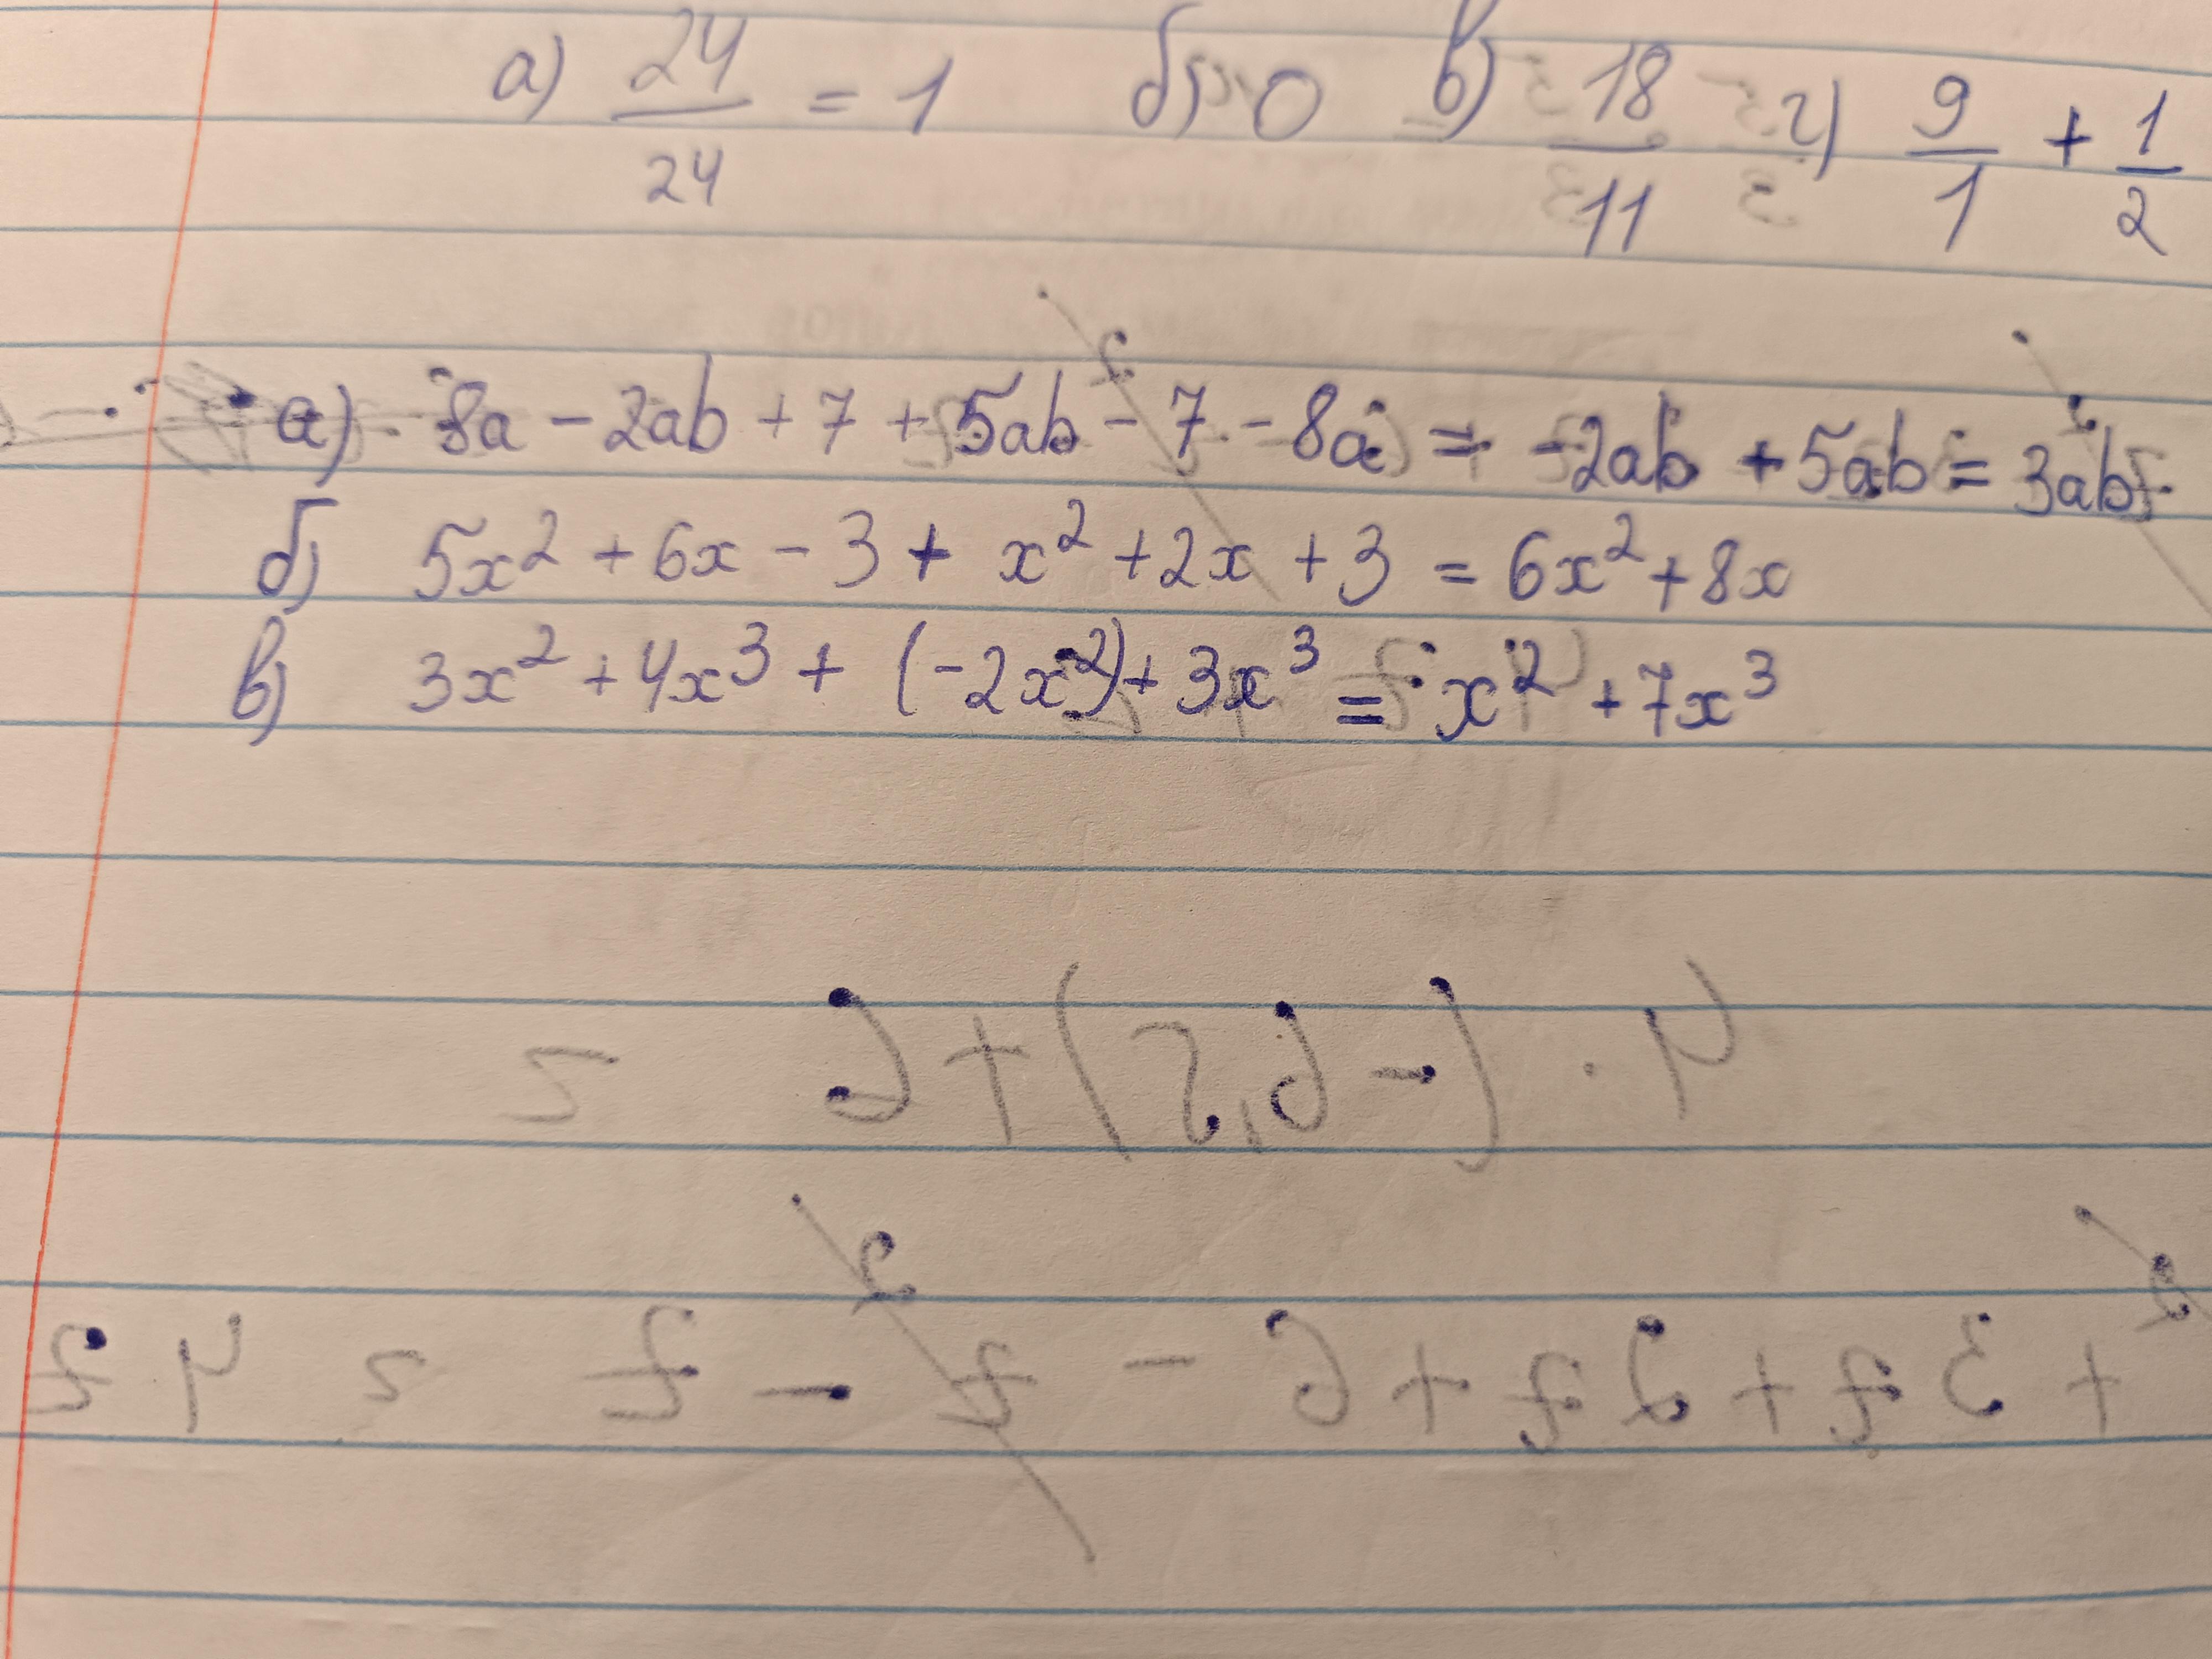 а) 24/24 = 1 б) 0 в) 18/11 г) 9/1 + 1/2
а) 8a - 2ab + 7 + 5ab - 7 - 8a = -2ab + 5ab = 3ab
б) 5x² + 6x - 3 + x² + 2x + 3 = 6x² + 8x
в) 3x² + 4x³ + (-2x²) + 3x³ = x² + 7x³